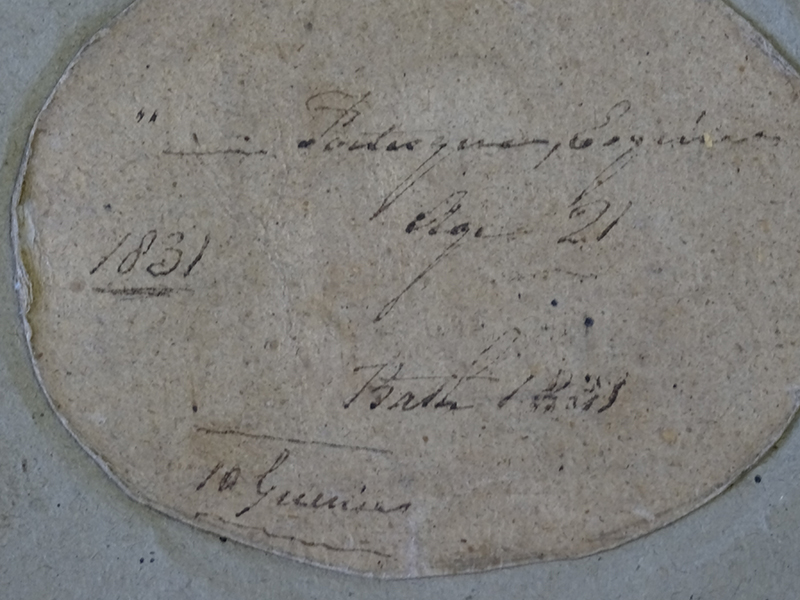 Esquire
Age 21
1831
Bath 1831
10 Guineas